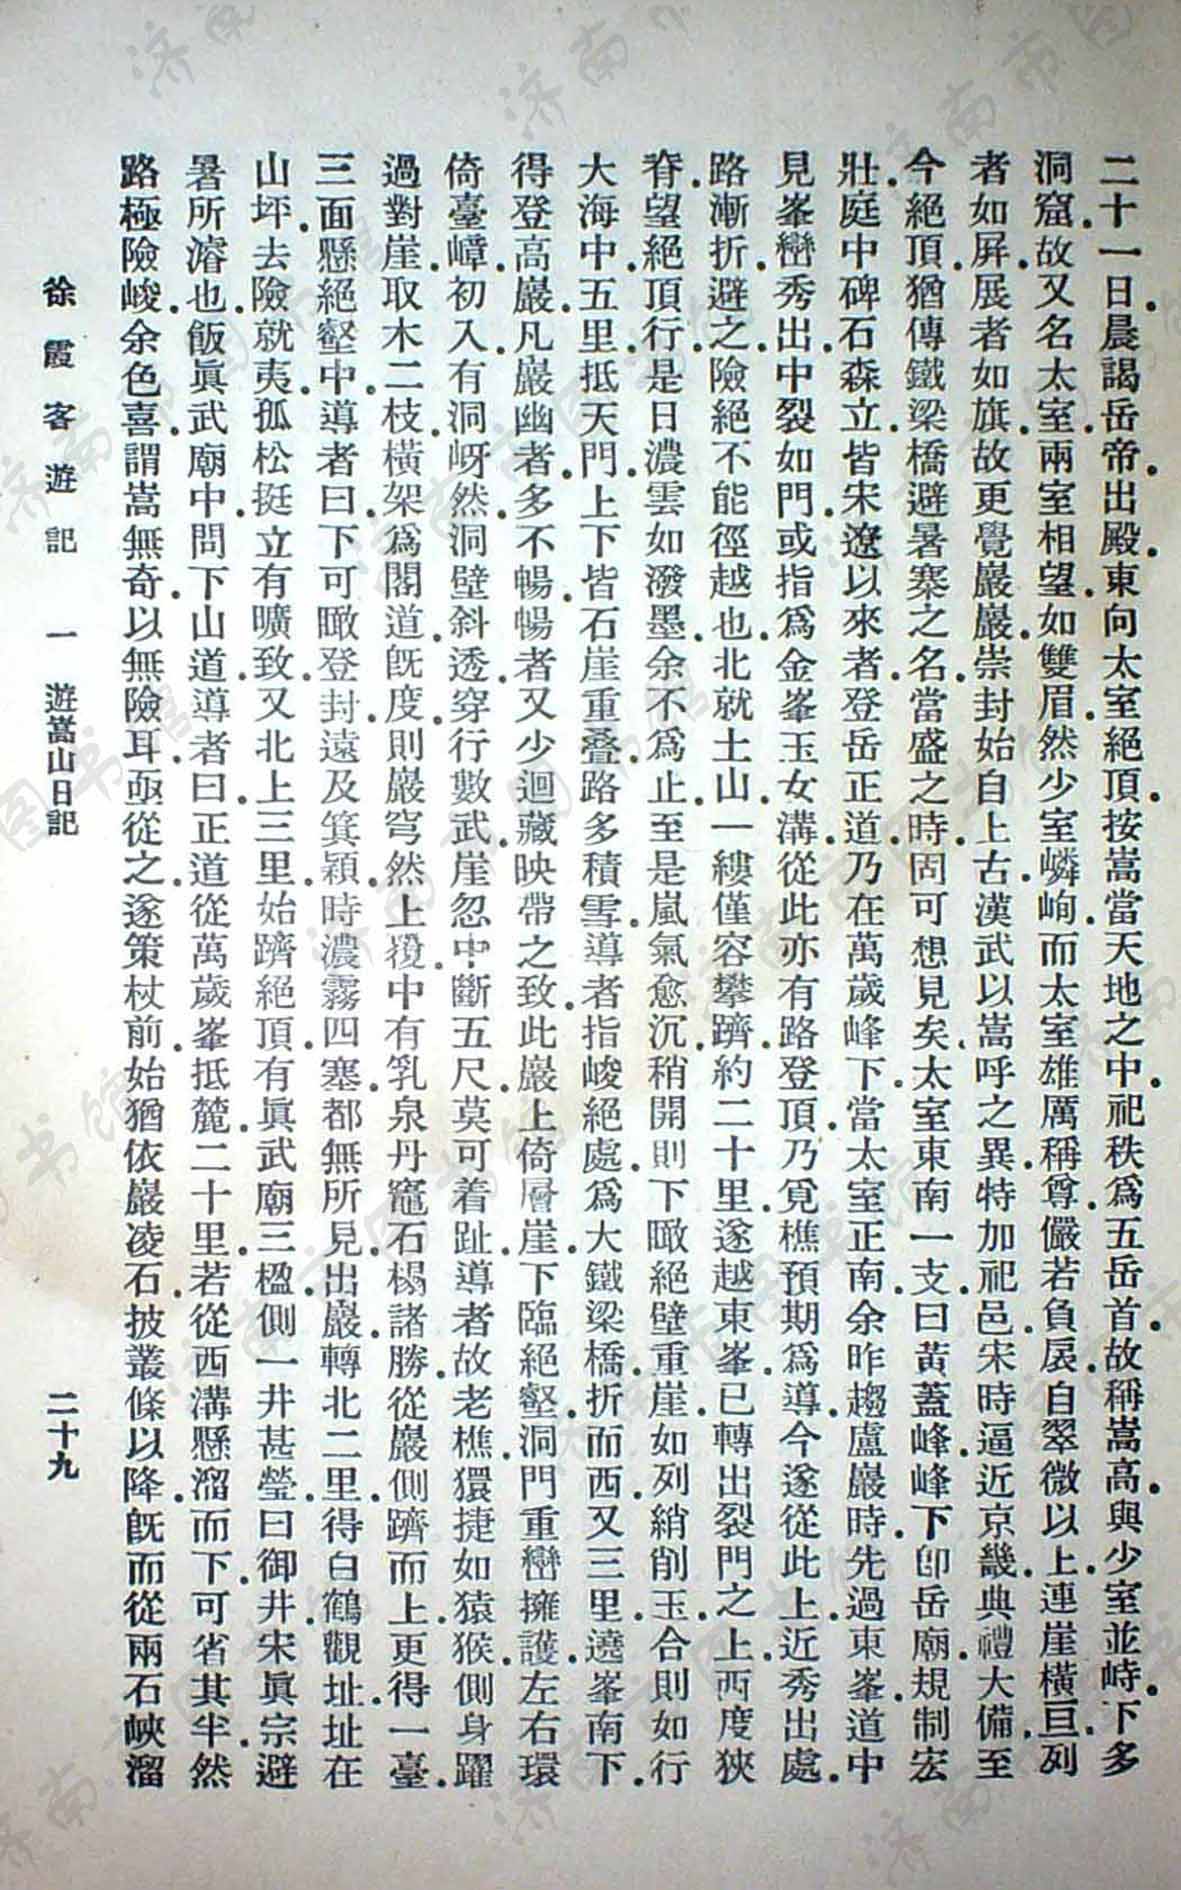 二十一日。晨謁岳帝。出殿。東向太室絕頂。按嵩當天地之中。祀秩爲五岳首。故稱嵩高。與少室並峙。下多
洞窟。故又名太室。兩室相望。如雙眉。然少室嶙峋。而太室雄厲稱尊。儼若負扆。自翠微以上。連崖橫亘。列
者如屏。展者如旗。故更覺巖巖。崇封始自上古。漢武以嵩呼之異。特加祀邑。宋時逼近京畿。典禮大備。至
今絕頂。猶傳鐵梁橋避暑寨之名。當盛之時。固可想見矣。太室東南一支。曰黃蓋峰。峰下卽岳廟。規制宏
壯。庭中碑石森立。皆宋遼以來者。登岳正道。乃在萬歲峰下。當太室正南。余昨趨盧巖時。先過東峯。道中
見峯巒秀出。中裂如門。或指爲金峯玉女溝。從此亦有路登頂。乃覓樵預期爲導。今遂從此上。近秀出處。
路漸折。避之。險絕不能徑越也。北就土山。一縷僅容攀躋。約二十里。遂越東峯。已轉出裂門之上。西度狹
脊。望絕頂行。是日濃雲如潑墨。余不爲止。至是嵐氣愈沉。稍開則下瞰絕壁重崖。如列綃削玉。合則如行
大海中。五里。抵天門。上下皆石崖重叠。路多積雪。導者指峻絕處。爲大鐵梁橋。折而西。又三里。遶峯南下。
得登高巖。凡巖幽者。多不暢。暢者又少迴藏映帶之致。此巖上倚層崖。下臨絕壑。洞門重巒擁護。左右環
倚臺嶂。初入。有洞岈然。洞壁斜透。穿行數武。崖忽中斷五尺。莫可着趾。導者故老樵。獧捷如猿猴。側身躍
過對崖。取木二枝。橫架爲閣道。旣度。則巖穹然上覆。中有乳泉丹竈石榻諸勝。從巖側躋而上。更得一臺。
三面懸絕壑中。導者曰。下可瞰登封。遠及箕潁。時濃霧四塞。都無所見。出巖。轉北二里。得白鶴觀址。址在
山坪。去險就夷。孤松挺立。有曠致。又北上三里。始躋絕頂。有眞武廟三楹。側一井甚瑩。曰御井。宋眞宗避
暑所濬也。飯眞武廟中。問下山道。導者曰。正道從萬歲峯抵麓。二十里。若從西溝懸溜而下。可省其半。然
路極險峻。余色喜。謂嵩無奇。以無險耳。亟從之。遂策杖前。始猶依巖凌石。披叢條以降。旣而從兩石峽溜
徐霞客遊記　一　遊嵩山日記　二十九